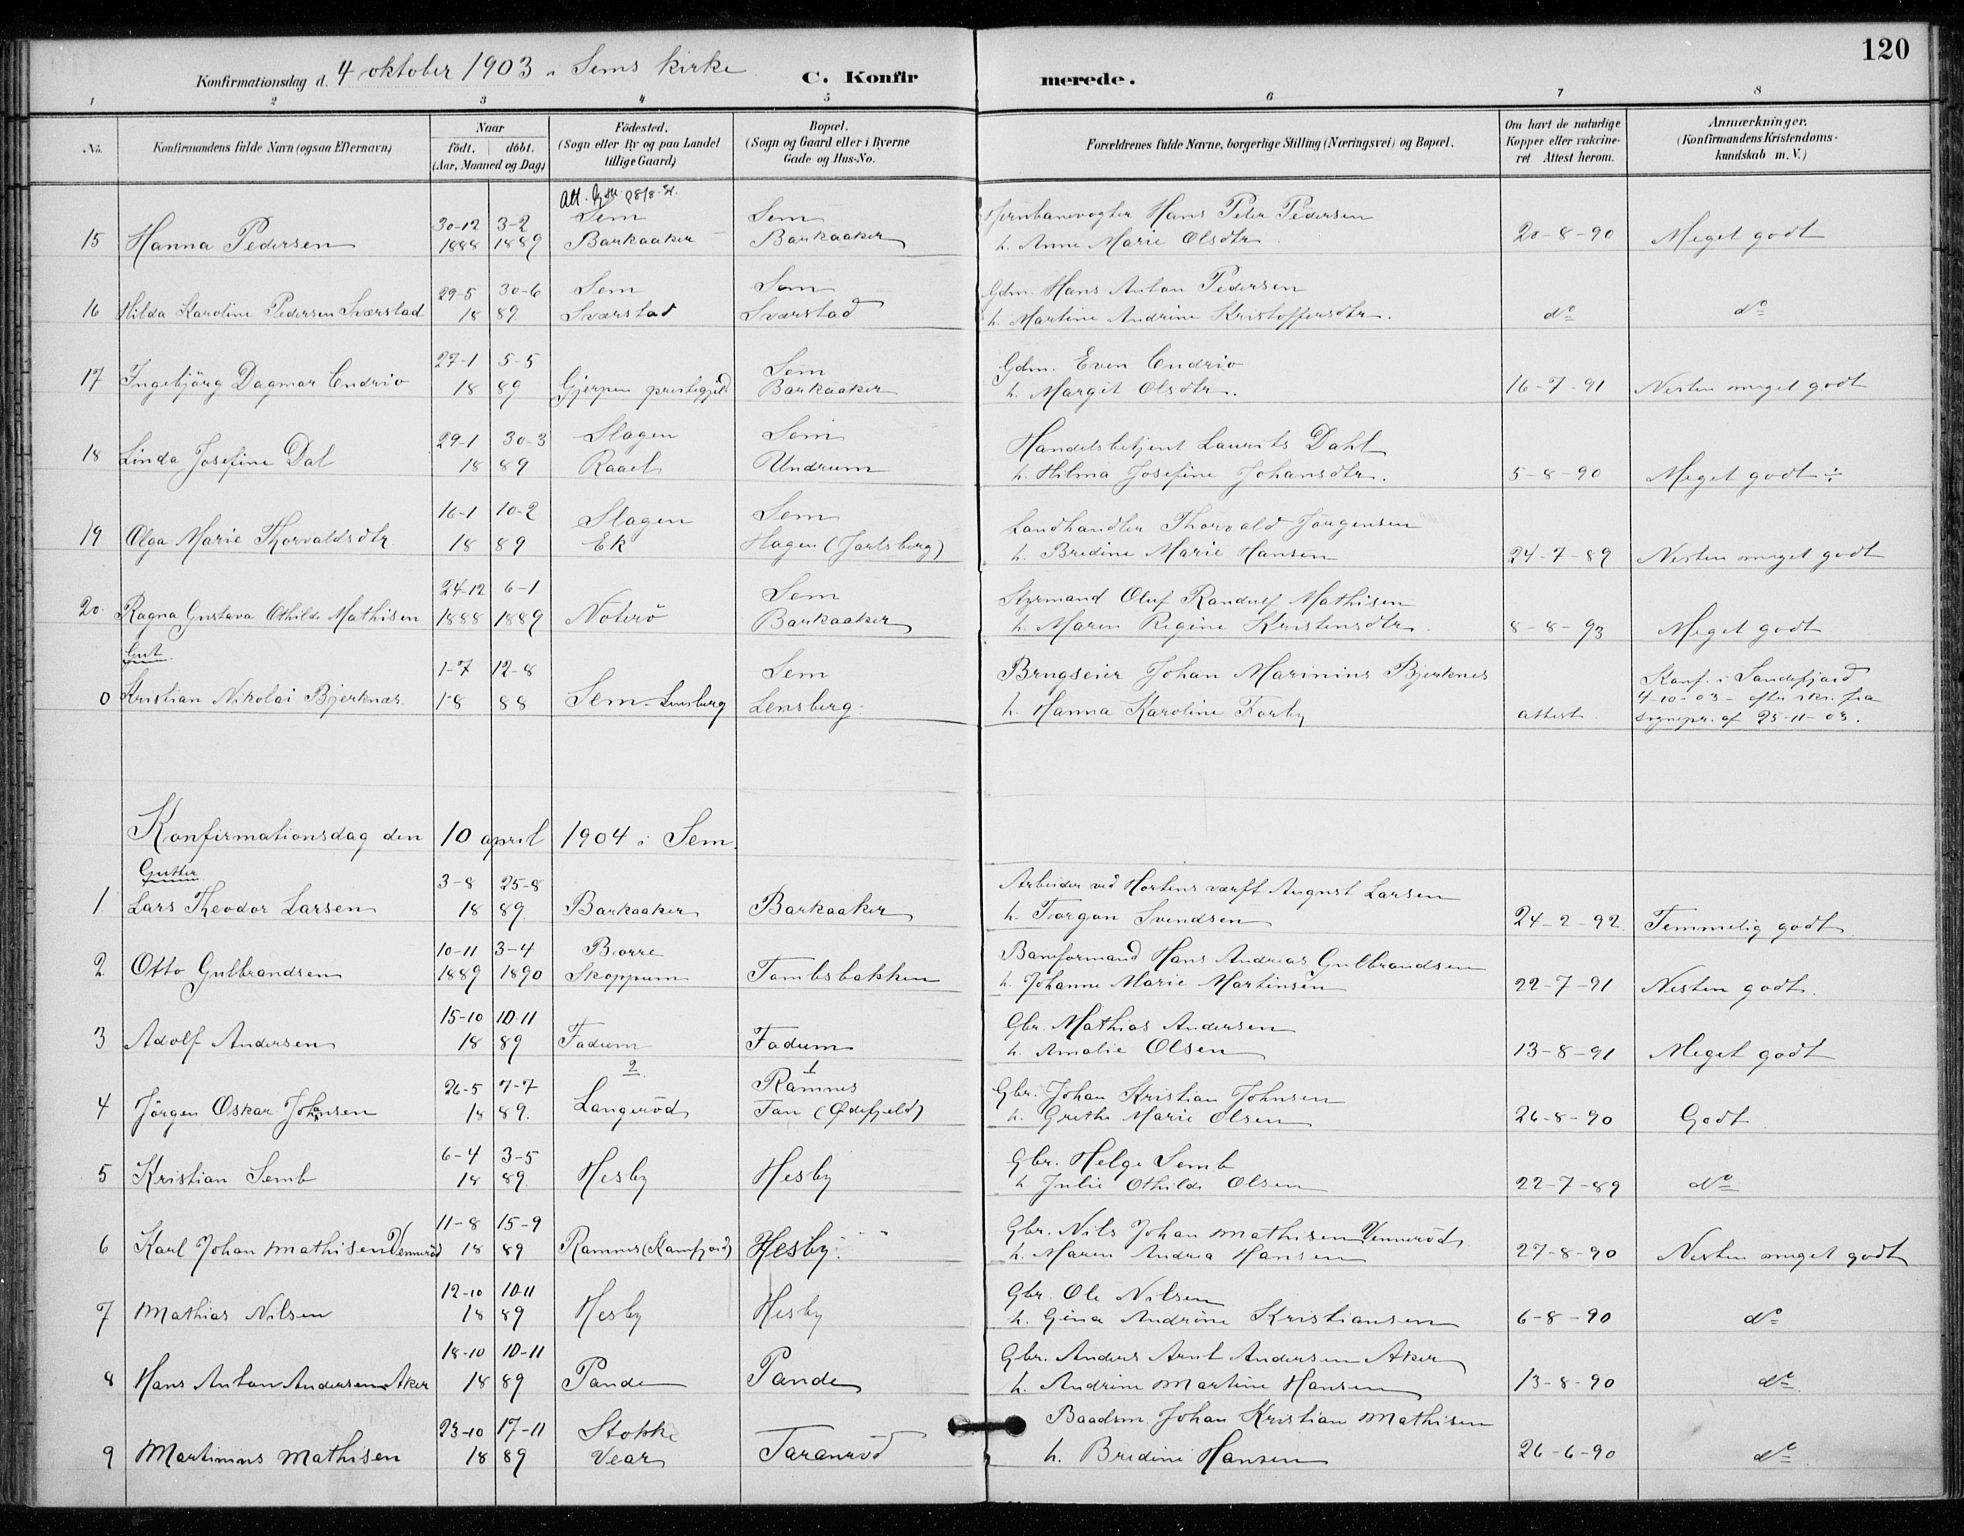 120
Konfirmationsdag d. 4 oktober 1903 i Sems kirke. C. Konfirmerede.
1 2 3 4 5 6 7 8
No. Konfirmandens fulde Navn (ogsaa Efternavn) Naar født. døbt. (Aar, Maaned og Dag) Fødested. (Sogn eller By og paa Landet tillige Gaard) Bopæl. (Sogn og Gaard eller i Byerne Gade og Hus-No. Forældrenes fulde Navne, borgerlige Stilling (Næringsvei) og Bopæl. Om havt de naturlige Kopper eller vakcineret Attest herom. Anmærkninger. (Konfirmandens Kristendomskundskab m. V.)
Att.
30-12 3-2 Sem Sem Jernbanevogter Hans Peter Pedersen
15 Hanna Pedersen 1888 1889 Barkaaker Barkaaker h. Anne Marie Olsdtr. 20-8-90 Meget godt
29-5 30-6 Sem Sem Gdm. Hans Anton Pedersen
16 Hilda Karoline Pedersen Sværstad 18 89 Sværstad Sværstad h. Martine Andrine Kristoffersdtr. do do
27-1 5-5 Sem Gdm. Even Endrio
17 Ingebjörg Dagmar Endrio 18 89 Gjerpen prestegjeld Barkaaker h. Margit Olsdtr. 16-7-91 Nesten meget godt
29-1 30-3 Slagen Sem Handelsbetjent Laurits Dahl
18 Linda Josefine Dal 18 89 Raael Undrum h. Hilma Josefine Johansdtr. 5-8-90 Meget godt ÷
16-1 10-2 Slagen Sem Landhandler Thorvald Jørgensen
19 Olga Marie Thorvaldsdtr. 18 89 Ek Hagen (Jarlsberg) h. Bredine Marie Hansen 24-7-89 Nesten meget godt
24-12 6-1 Sem Styrmand Oluf Randulf Mathisen
20. Ragna Gustava Othilde Mathisen 1888 1889 Nöterö Barkaaker h. Maren Regine Kristensdtr. 8-8-93 Meget godt
Gut.
1-7 12-8 Sem Brugseier Johan Marinius Bjerknes Konf. i Sandefjord
0 Kristian Nikolai Bjerknæs 18 88 Sem Lensberg Lensberg. h. Hanna Karoline Forby attest. 4-10-03 - efter skr. fra
sognepr. af 25-11-03.
Konfirmationsdag den 10 april 1904 i Sem.
Gutter
3-8 25-8 Arbeider ved Hortens værft August Larsen
1. Lars Theodor Larsen 18 89. Barkaaker Barkaaker h. Torgon Svendsen 24-2-92. Temmelig godt
10-11 3-4 Borre Baneformand Hans Andreas Gulbrandsen
2 Otto Gulbrandsen 1889 1890 Skoppum Tombsbakken h. Johanne Marie Martinsen 22-7-91 Nesten godt.
15-10 10-11 Gbr. Mathias Andersen
3 Adolf Andersen 18 89 Fadum Fadum h. Amalie Olsen 13-8-91 Meget godt
2 1
26-5 7-7 Ramnes Gbr. Johan Kristian Johnsen
4 Jörgen Oskar Johnsen 18 89. Langeröd Tan (Ødefjeld) h. Grethe Marie Olsen 26-8-90 Godt
6-4 3-5 Gbr. Helge Semb
5 Kristian Semb 18 89. Hesby Hesby h. Julie Othilde Olsen 22-7-89 do
11-8 15-9 Gbr. Nils Johan Mathisen Venneröd
6 Karl Johan Mathisen Venneröd 18 89 Ramnes (Kamfjord) Hesby. h. Maren Andrea Hansen 27-8-90 Nesten meget godt
12-10 10-11 Gbr. Ole Nilsen
7 Mathias Nilsen 18 89 Hesby Hesby h. Gina Andrine Kristiansen 6-8-90 do
18-10 10-11 Gbr. Anders Arnt Andersen Aker
8 Hans Anton Andersen Aker 18 89 Pande Pande h. Andrine Martine Hansen 13-8-90 do
23-10 17-11 Stokke Baadsm. Johan Kristian Mathisen
9 Martinius Mathisen 18 89 Vear Taranröd h. Bredine Hansen 26-6-90 do